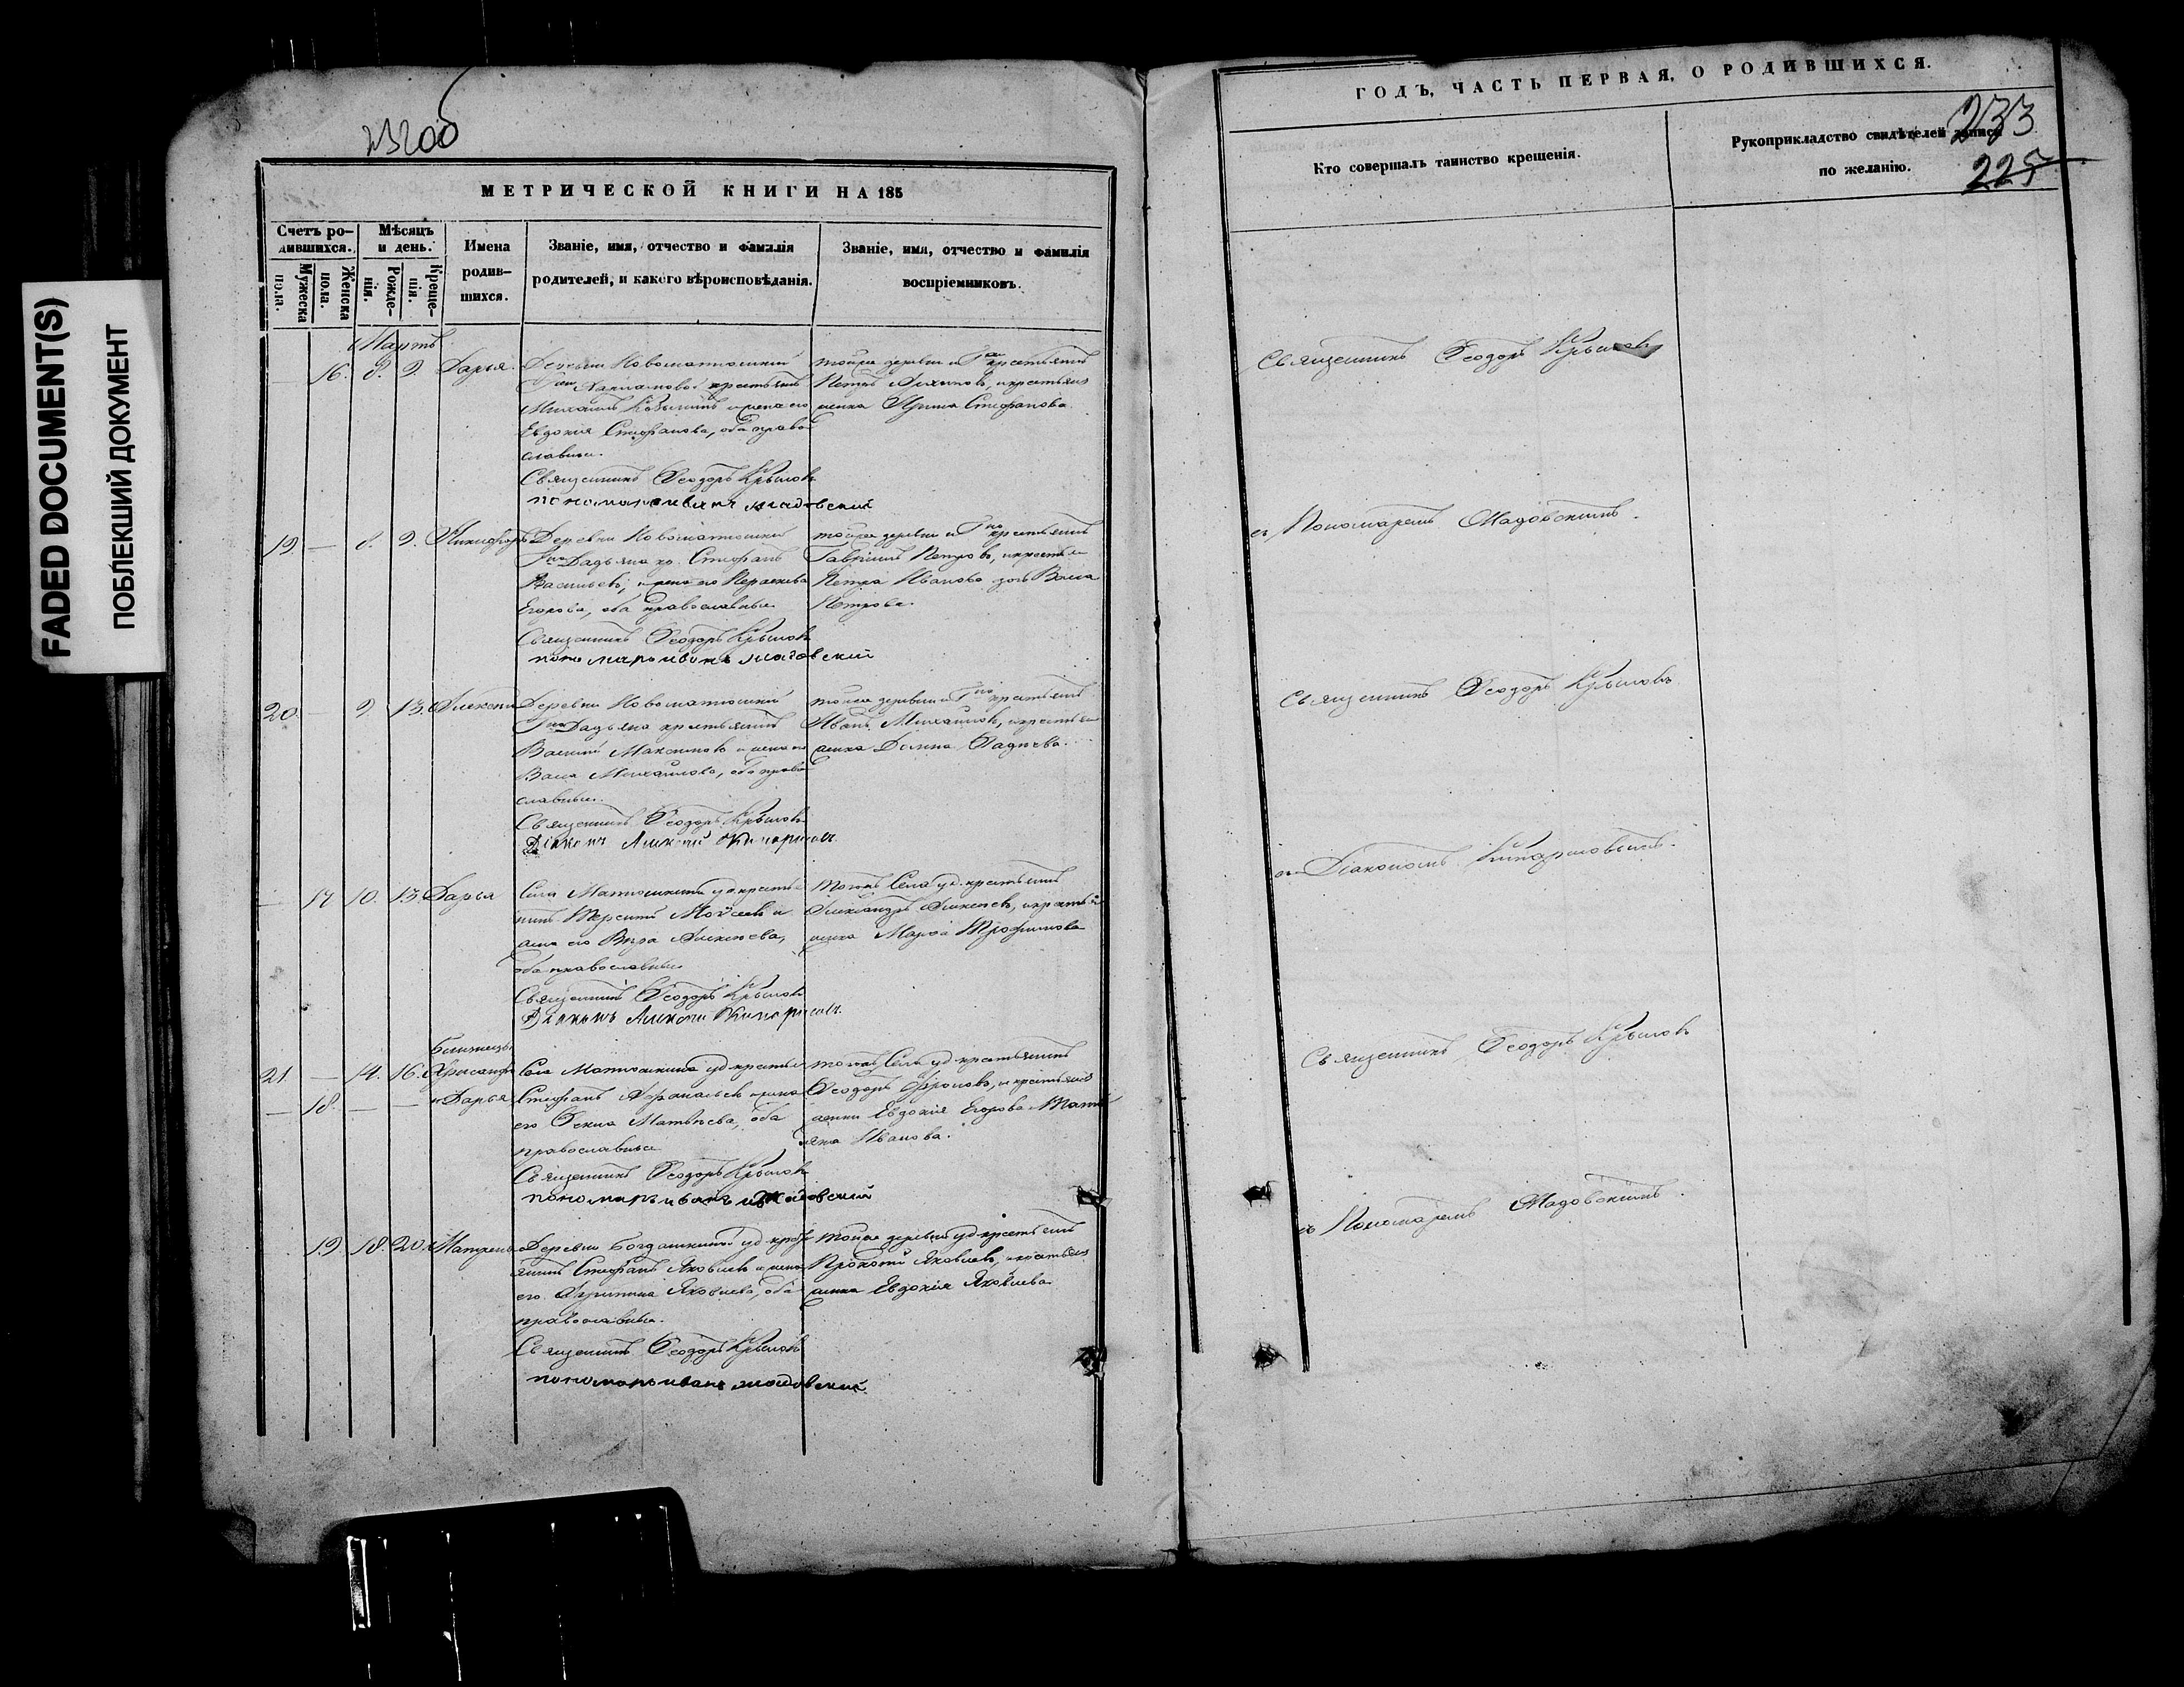 FADED DOCUMENT(S)
ПОБЛЕКШИЙ ДОКУМЕНТ
МЕТРИЧЕСКОЙ КНИГИ НА 185
Счетъ ро-
дившихся.
Мужеска
пола.
Женска
пола.
Мѣсяцъ
и день.
Рожде-
нія.
Креще-
нія.
Имена
родив-
шихся.
Званіе, имя, отчество и фамилія
родителей, и какого вѣроисповѣданія.
Званіе, имя, отчество и фамилія
воспріемниковъ.
Мартъ
16. 8. 9. Дарья.
Деревни Новоматюшкий
крестьянинъ
Михаилъ и жена его
Евдокия Стефанова, оба право
славные.
Священникъ Ѳеодоръ Крыловъ
пономарь иванъ мадовский
тойже деревни крестьянинъ
Петръ
Ирина Стефанова.
19 — 8. 9. Никифоръ
Деревни Новоматюшкий
Дадьяна кр. Стефанъ
Васильевъ, и жена его Параскева
Егорова, оба православные.
Священникъ Ѳеодоръ Крыловъ
пономарь иванъ мадовский
тойже деревни крестьянинъ
Гавриилъ Петровъ, и крестьян
Петра Иванова дочь Васса
Петрова.
20. — 9 13. Алексей
Деревни Новоматюшкий
Дадьяна крестьянинъ
Василий Максимовъ и жена его
Васса Михайлова, оба право
славные.
Священникъ Ѳеодоръ Крыловъ
Діаконъ Алексей
тойже деревни крестьянинъ
Иванъ Михайловъ, и крестьян
Домна Фадѣева.
— 17 10. 13. Дарья
Села Матюшкина уд. крестья
нинъ Терентий Моисеевъ и
жена его Вѣра Алексѣева,
оба православные.
Священникъ Ѳеодоръ Крыловъ
Діаконъ Алексей
тогожъ Села уд. крестьянинъ
Александръ Алексѣевъ, и крестьян
Марѳа Трофимова
Близнецы
21. — 14. 16. Хрисанфъ
— 18. — — и Дарья
Села Матюшкина уд. крестьян
Стефанъ Афанасьевъ и жена
его Фекла Матвѣева, оба
православные
Священникъ Ѳеодоръ Крыловъ
пономарь иванъ мадовский
тогожъ Села уд. крестьянинъ
Ѳеодоръ Фроловъ, и крестьян
Евдокия Егорова и Тать
яна Иванова.
19. 18. 20. Матрена
Деревни Богдашкиной уд. кресть
янинъ Стефанъ Яковлевъ и жена
его Агрипина Яковлева, оба
православные.
Священникъ Ѳеодоръ Крыловъ
пономарь иванъ мадовский
тойже деревни уд. крестьянинъ
Прокопий Яковлевъ, и крестьян
Евдокия Яковлева
ГОДЪ, ЧАСТЬ ПЕРВАЯ, О РОДИВШИХСЯ.
233
225
Кто совершалъ таинство крещенія.
Рукоприкладство свидѣтелей записи
по желанію.
Священникъ Ѳеодоръ Крыловъ
съ Пономаремъ Мадовскимъ.
Священникъ Ѳеодоръ Крыловъ
съ Діакономъ Кипарисовымъ.
Священникъ Ѳеодоръ Крыловъ
съ Пономаремъ Мадовскимъ.